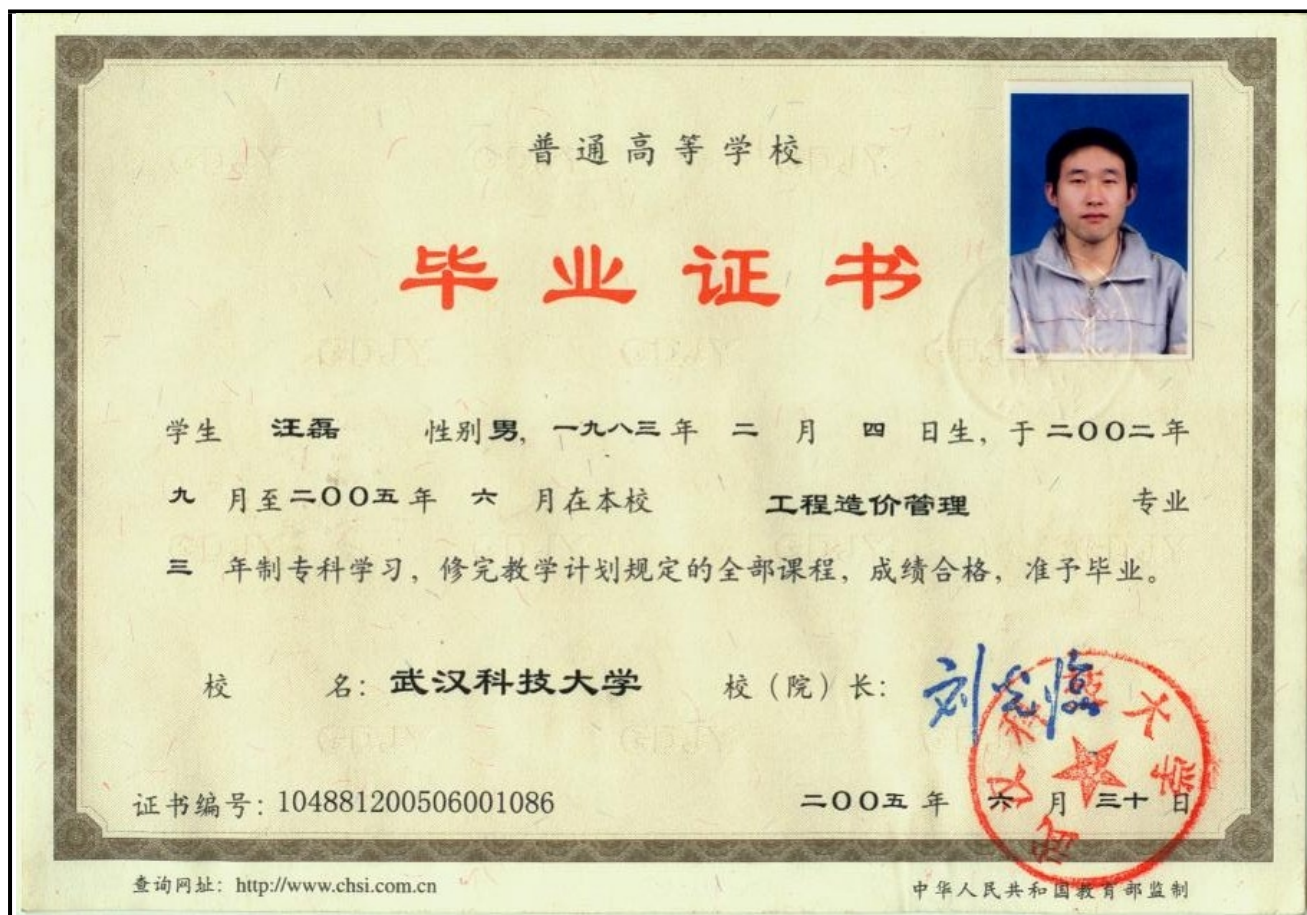 普通高等学校
毕业证书
学生 汪磊 性别男, 一九八三年 二 月 四 日生, 于二〇〇二年
九 月至二〇〇五年 六 月在本校 工程造价管理 专业
三 年制专科学习, 修完教学计划规定的全部课程, 成绩合格, 准予毕业。
校 名: 武汉科技大学 校(院)长: 刘光临
证书编号: 104881200506001086 二〇〇五年 六 月 三十 日
查询网址: http://www.chsi.com.cn 中华人民共和国教育部监制